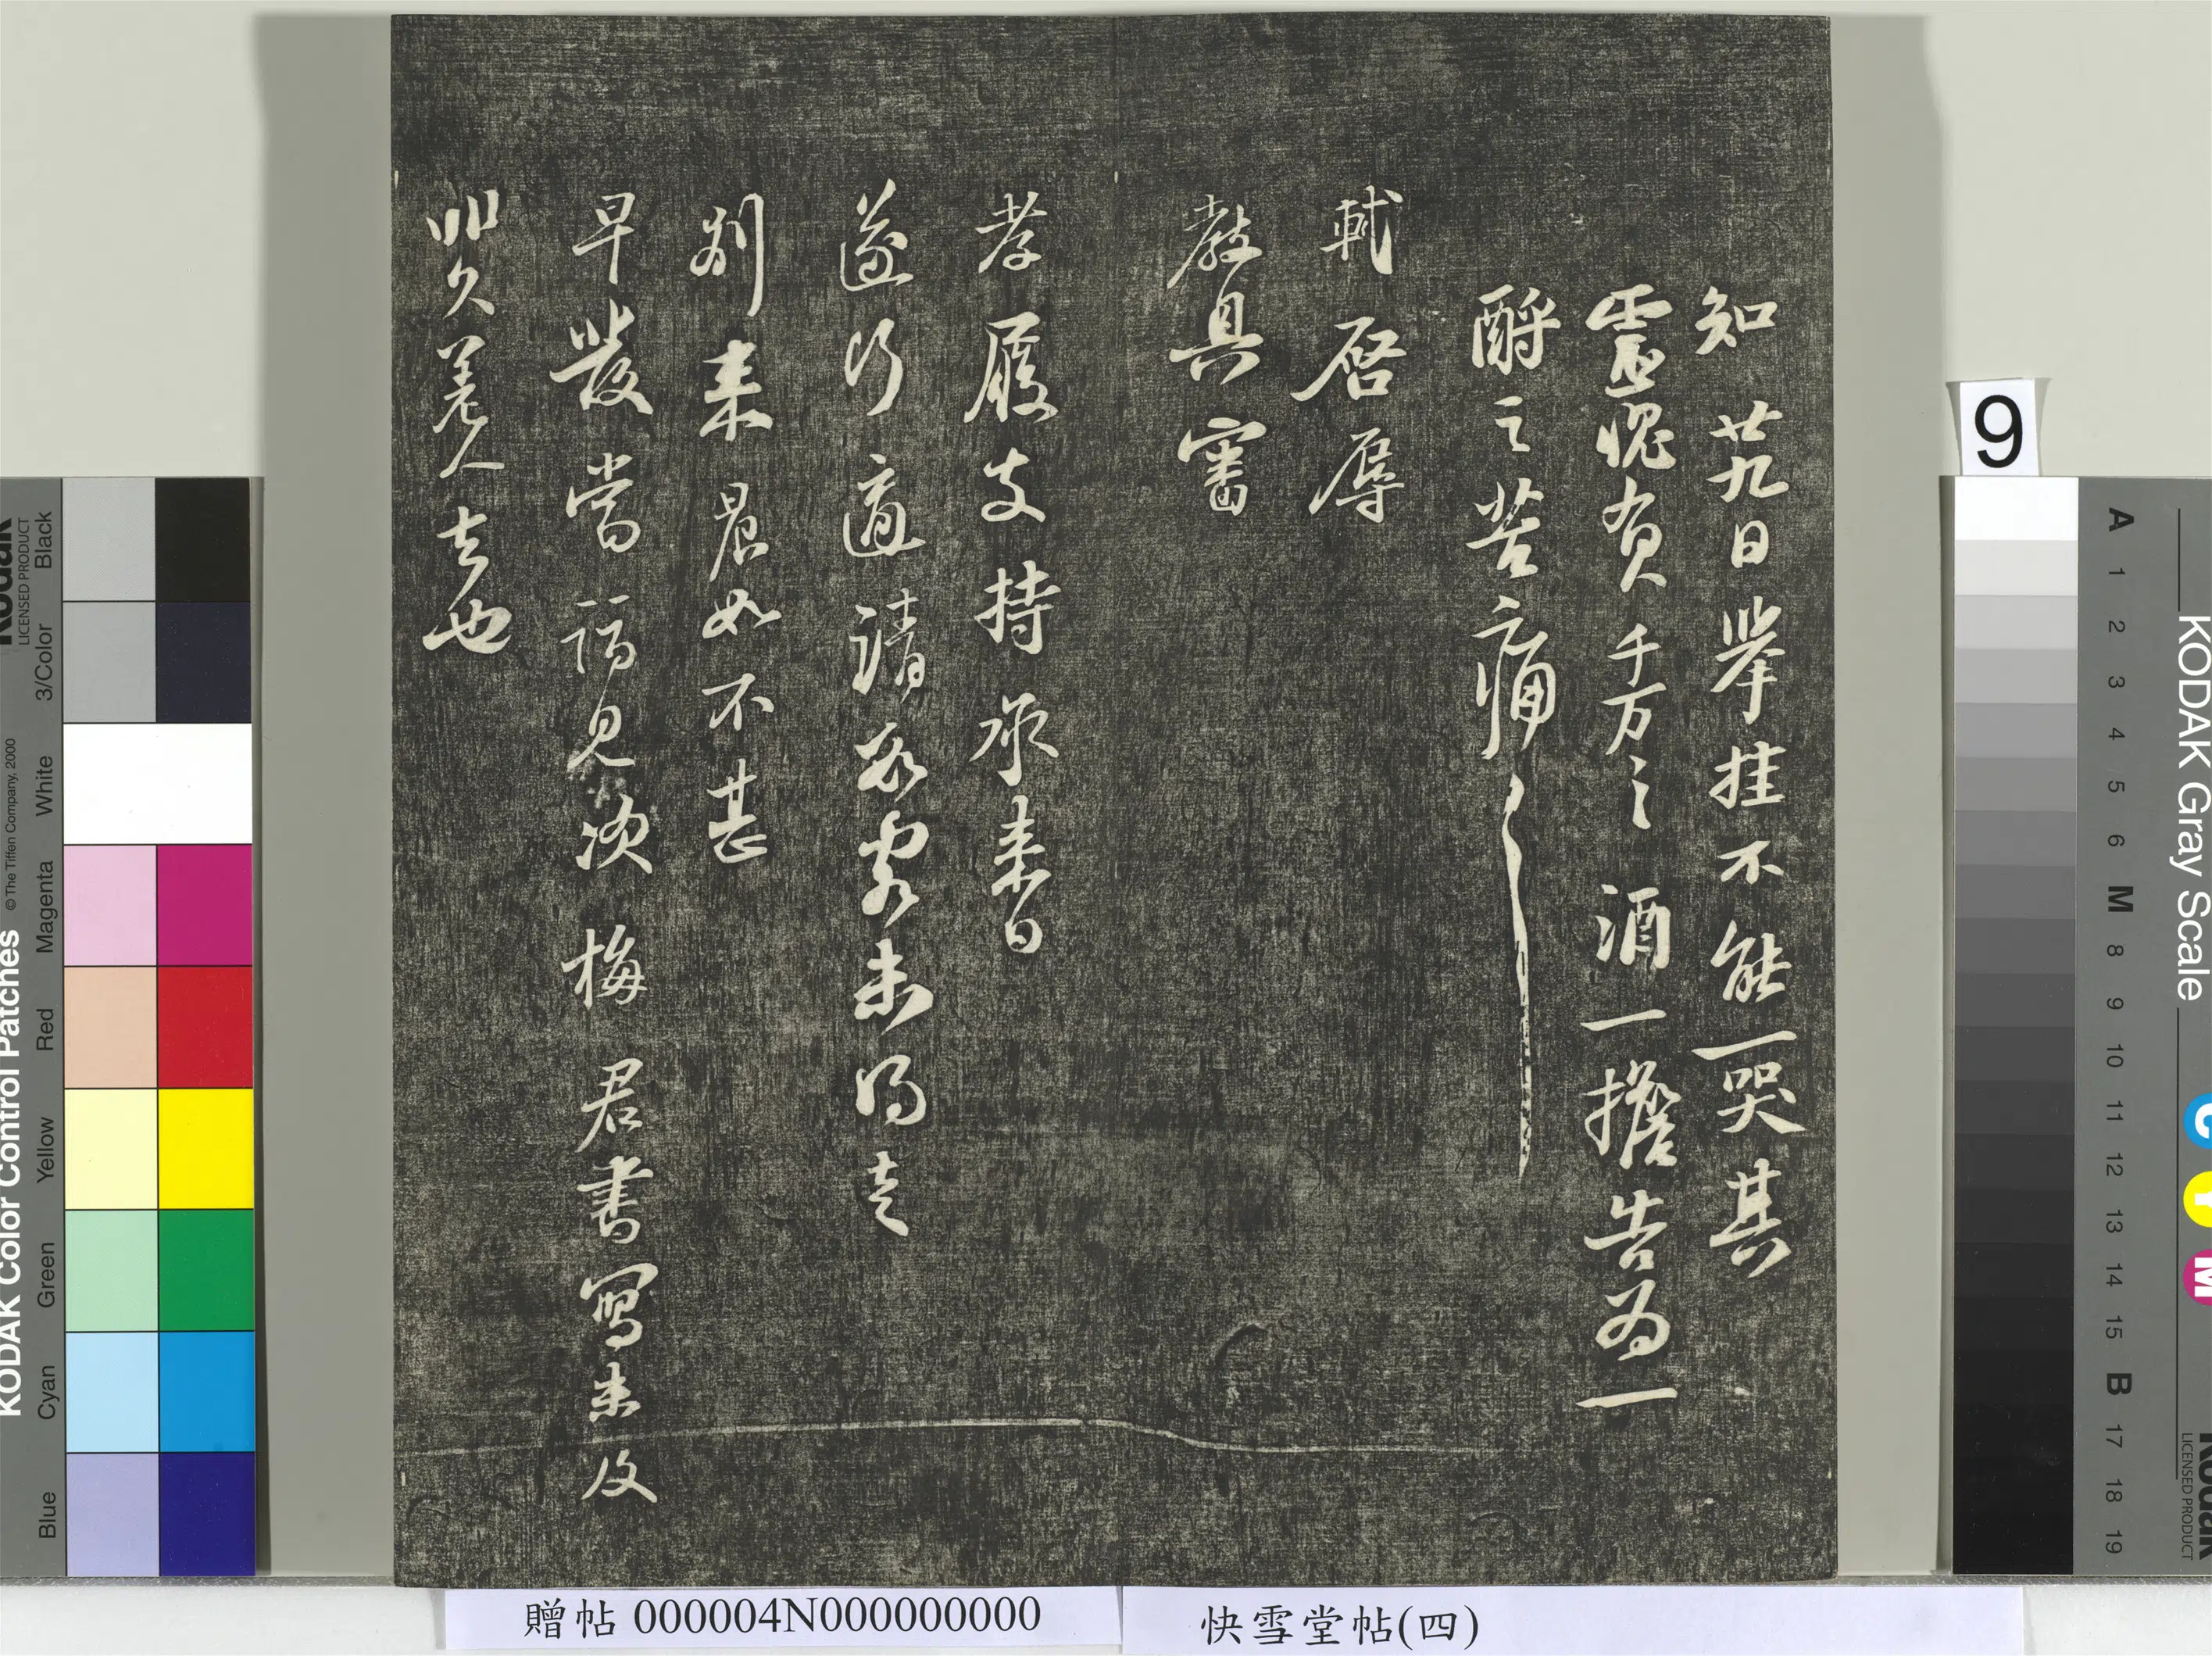 知廿九日舉挂不能一哭其
靈愧負千万〻酒一擔告為一
酹之苦痛〻
軾啓辱
教具審
孝履支持承来日
遂行適請數客未得走
別来晨如不甚
早發當詣見次梅君書寫未及
非久差人去也
9
贈帖 000004N000000000
快雪堂帖(四)
KODAK Color Control Patches
© The Tiffen Company, 2000
Kodak
LICENSED PRODUCT
Black
3/Color
White
Magenta
Red
Yellow
Green
Cyan
Blue
KODAK Gray Scale
C
Y
M
Kodak
LICENSED PRODUCT
A 1 2 3 4 5 6 M 8 9 10 11 12 13 14 15 B 17 18 19